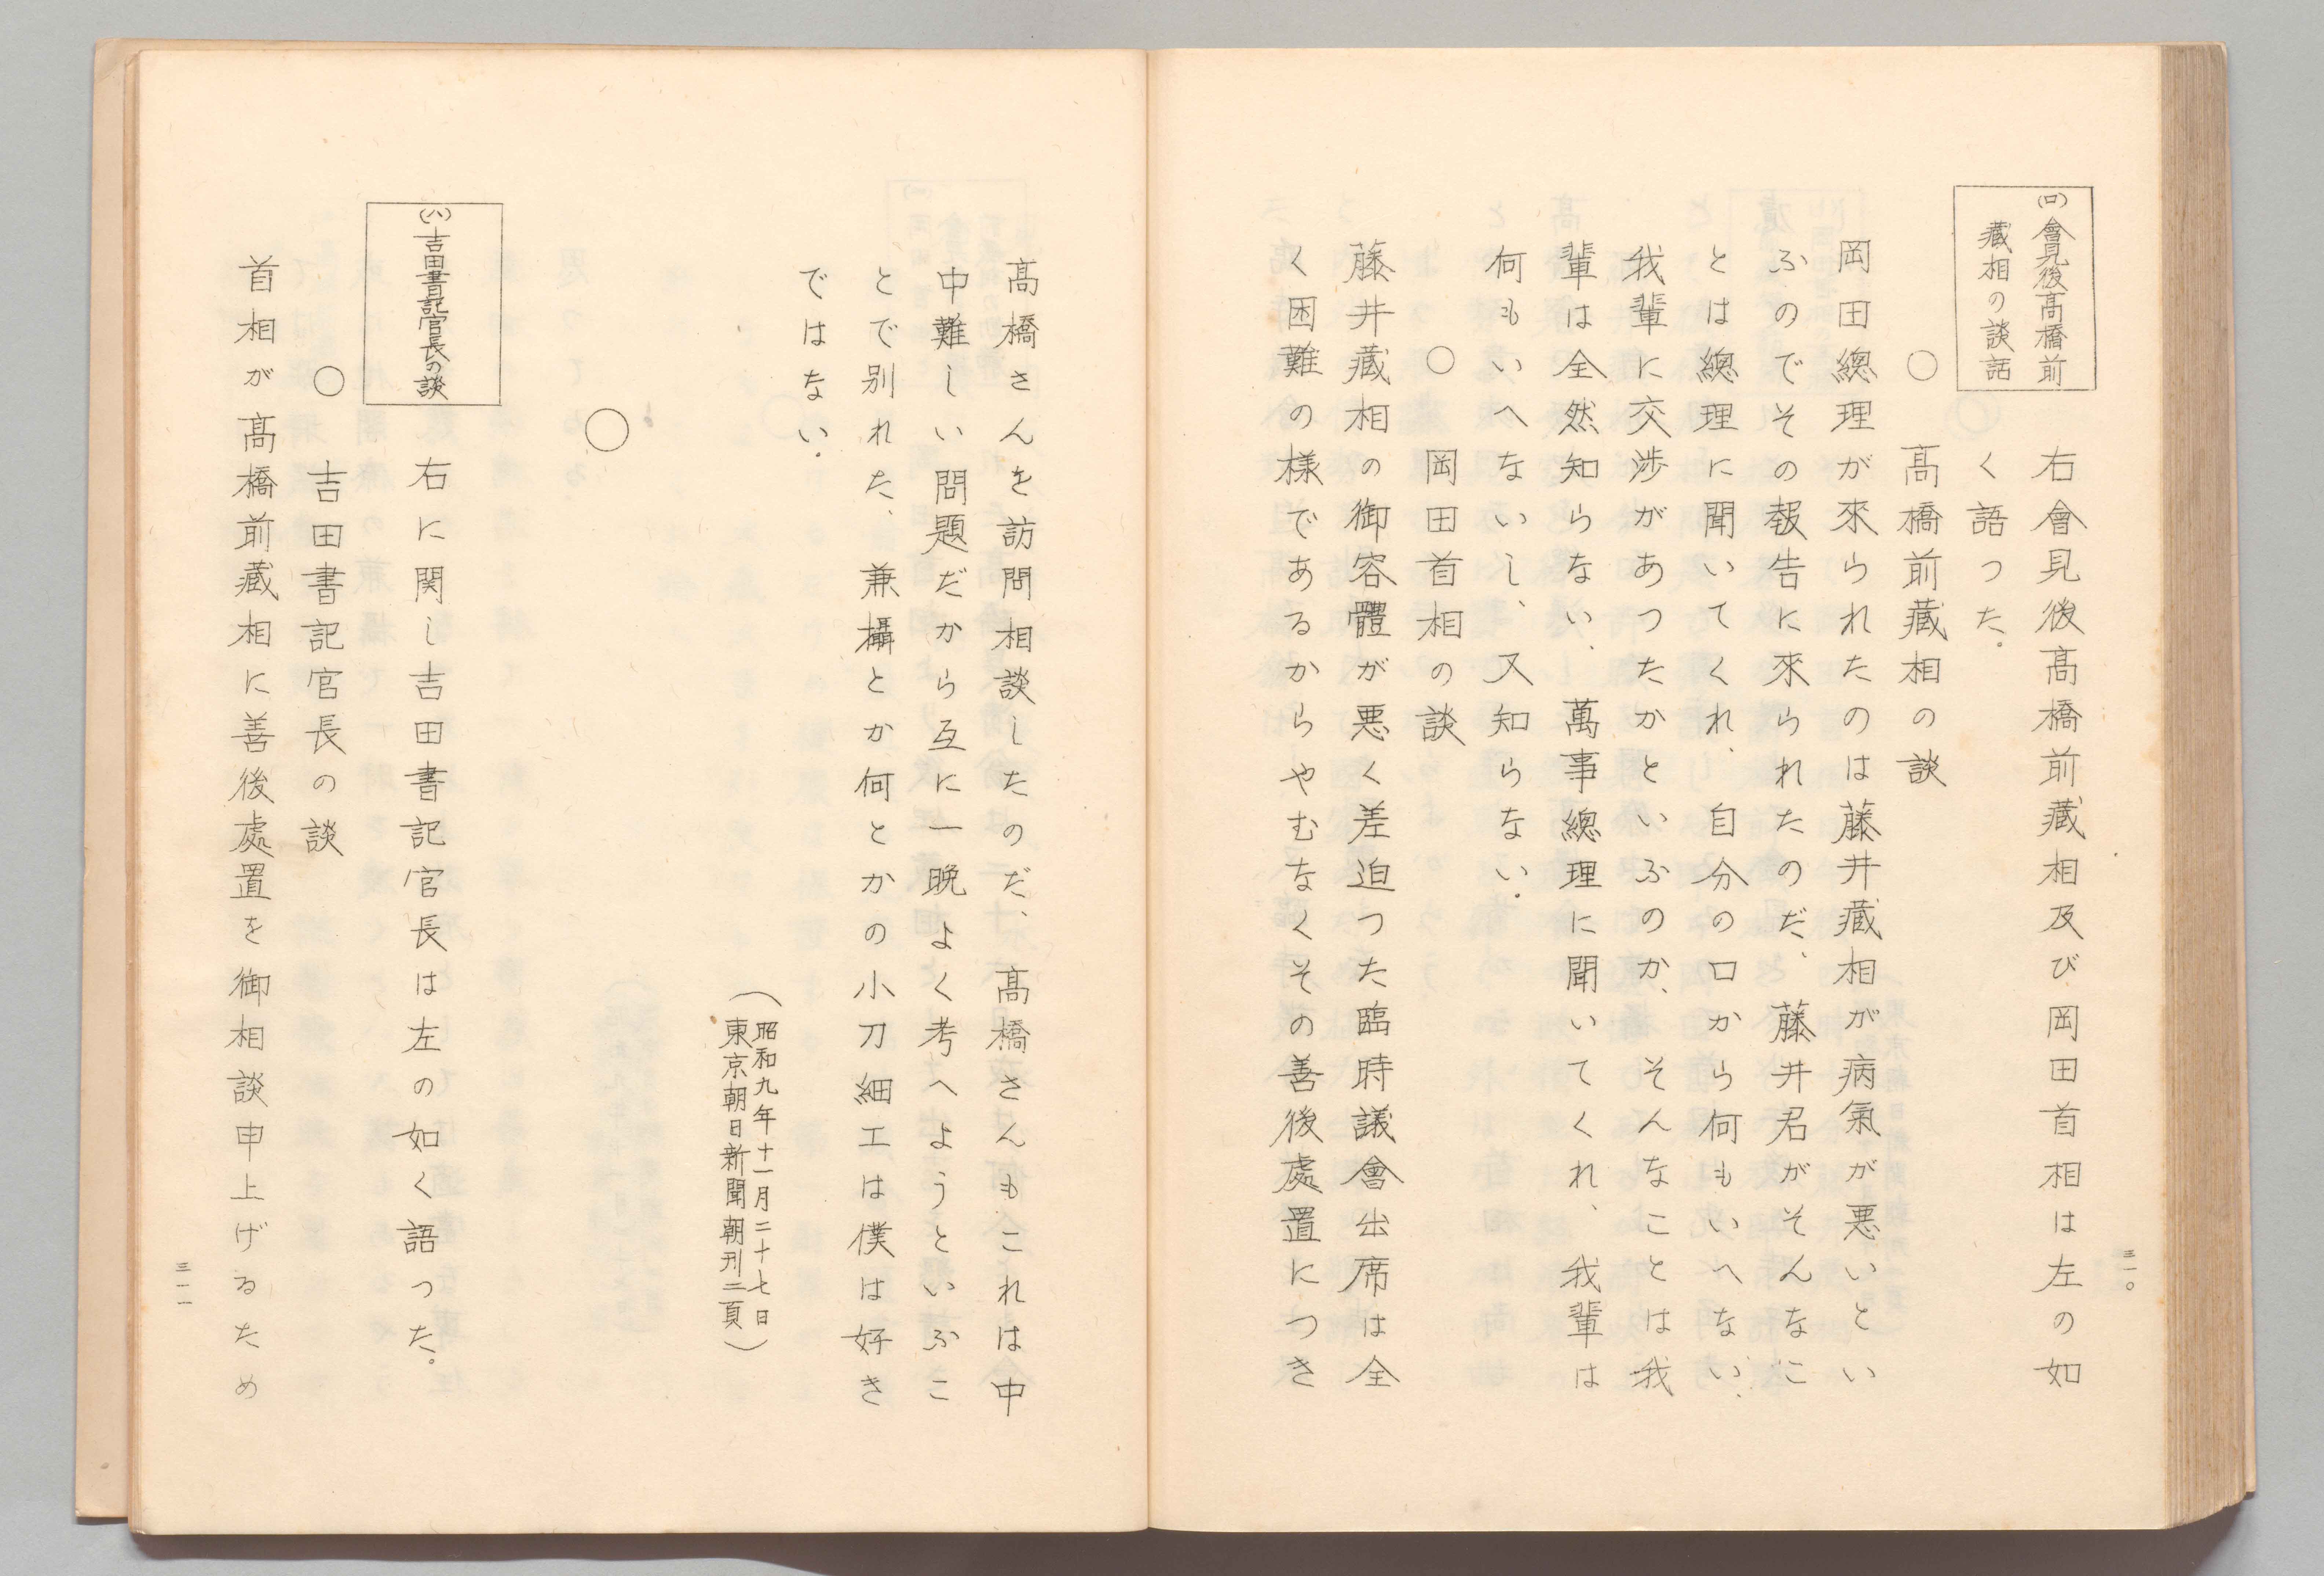 三一〇
(ロ)會見後髙橋前
藏相の談話
右會見後髙橋前藏相及び岡田首相は左の如
く語つた。
○　髙橋前藏相の談
岡田總理が來られたのは藤井藏相が病氣が悪いとい
ふのでその報告に來られたのだ、藤井君がそんなこ
とは總理に聞いてくれ、自分の口から何もいへない、
我輩に交渉があつたかといふのか、そんなことは我
輩は全然知らない、萬事總理に聞いてくれ、我輩は
何もいへないし、又知らない。
○　岡田首相の談
藤井藏相の御容體が悪く差迫つた臨時議會出席は全
く困難の様であるからやむなくその善後處置につき
髙橋さんを訪問相談したのだ、髙橋さんもこれは中
中難しい問題だから互に一晩よく考へようといふこ
とで別れた、兼攝とか何とかの小刀細工は僕は好き
ではない。
(昭和九年十一月二十七日
東京朝日新聞朝刊二頁)
○
(ハ)吉田書記官長の談
右に関し吉田書記官長は左の如く語つた。
○　吉田書記官長の談
首相が髙橋前藏相に善後處置を御相談申上げるため
三一一